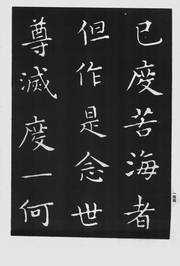 已度苦海者
但作是念世
尊滅度一何